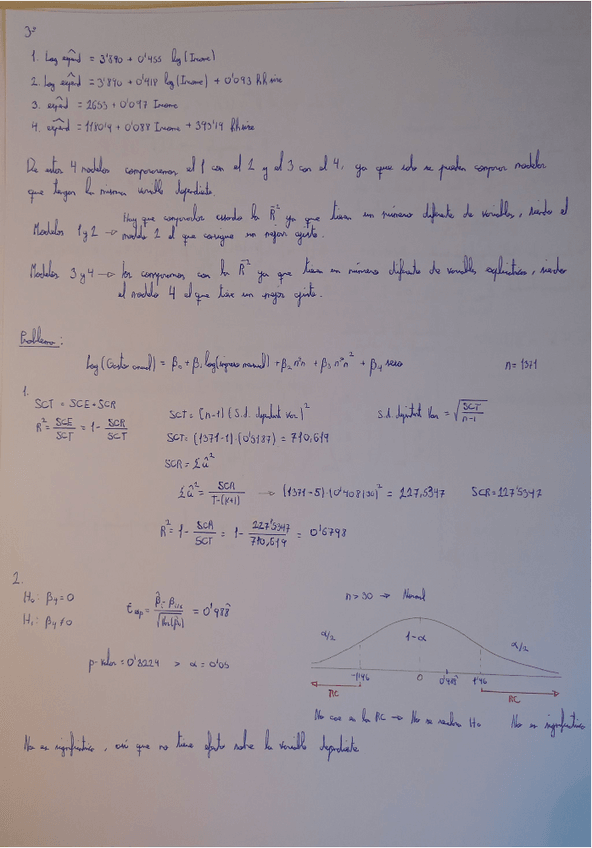 3º
1. Log expd = 3'890 + 0'455 log(Income)
2. Log expd = 3'840 + 0'418 log(Income) + 0'093 hhsize
3. expd = 2655 + 0'097 Income
4. expd = + 0'088 Income + hhsize
De estos 4 modelos compararemos el 1 con el 2 y el 3 con el 4, ya que solo se pueden comparar modelos
que tengan la misma variable dependiente.
Modelos 1 y 2 → Hay que compararlos usando la R̄² ya que tienen un número diferente de variables, siendo el
modelo 2 el que consigue un mejor ajuste.
Modelos 3 y 4 → los comparamos con la R̄² ya que tienen un número diferente de variables explicativas, siendo
el modelo 4 el que tiene un mejor ajuste.
Problema:
Log(Gasto anual) = β₀ + β₁ log(ingreso mensual) + β₂ nºn + β₃ nºn² + β₄ sexo n = 1371
1.
SCT = SCE + SCR SCT = (n-1)(S.d. dependent var)² s.d. dependent Var = √(SCT/(n-1))
R² = SCE/SCT = 1 - SCR/SCT SCT = (1371-1)·(0'5187) = 710,619
SCR = Σû²
Σû² = SCR/(T-(k+1)) → (1371-5)·(0'408130)² = 227,5347 SCR = 227'5347
R² = 1 - SCR/SCT = 1 - 227'5347/710,619 = 0'6798
2.
H₀: β₄ = 0 n > 30 → Normal
H₁: β₄ ≠ 0 = 0'988
α/2 1-α α/2
p-valor = 0'3224 > α = 0'05
-1'96 0 0'988 1'96
RC RC
No cae en la RC → No se rechaza H₀ No es significativa
No es significativa, así que no tiene efecto sobre la variable dependiente